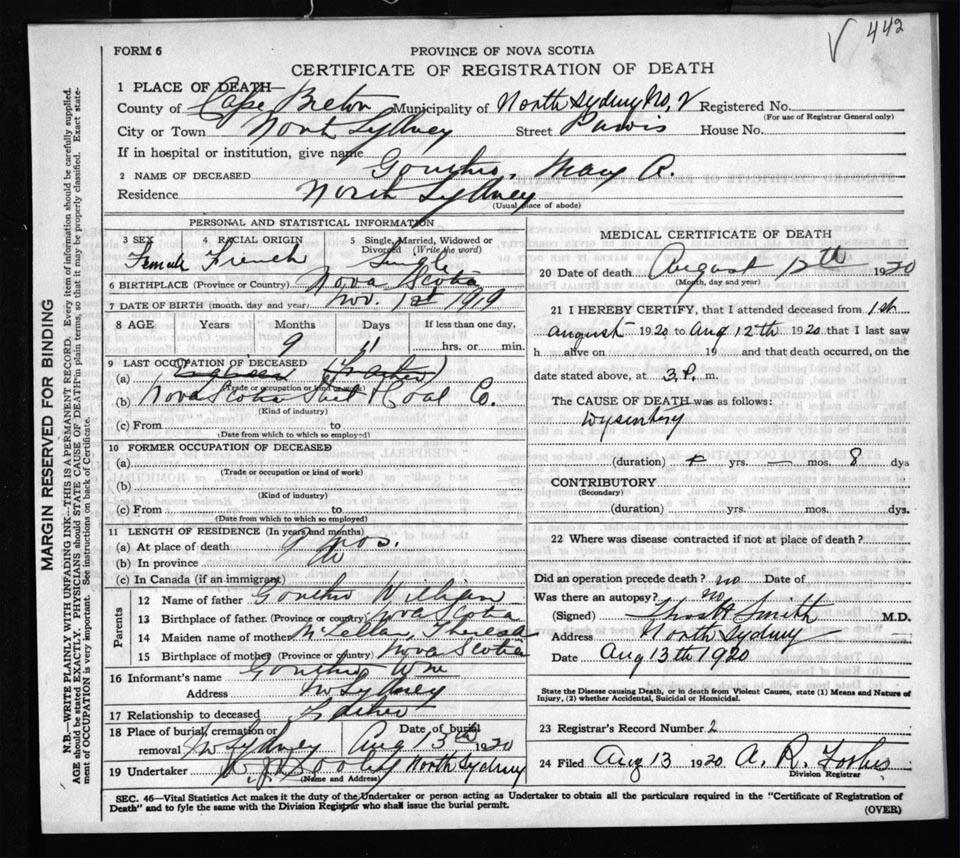 442
FORM 6
PROVINCE OF NOVA SCOTIA
CERTIFICATE OF REGISTRATION OF DEATH
1 PLACE OF DEATH—
County of Cape Breton Municipality of North Sydney No, 2 Registered No.
(For use of Registrar General only)
City or Town North Sydney Street House No.
If in hospital or institution, give name
2 NAME OF DECEASED Gouthro, Mary A.
Residence North Sydney
(Usual place of abode)
PERSONAL AND STATISTICAL INFORMATION
3 SEX 4 RACIAL ORIGIN 5 Single, Married, Widowed or Divorced (Write the word)
Female French Single
6 BIRTHPLACE (Province or Country) Nova Scotia
7 DATE OF BIRTH (month, day and year) Nov. 1st 1919
8 AGE Years Months Days If less than one day,
9 11 hrs. or min.
9 LAST OCCUPATION OF DECEASED
(a) Engineer
(Trade or occupation or kind of work)
(b) Nova Scotia Steel & Coal Co.
(Kind of industry)
(c) From to
(Date from which to which so employed)
10 FORMER OCCUPATION OF DECEASED
(a)
(Trade or occupation or kind of work)
(b)
(Kind of industry)
(c) From to
(Date from which to which so employed)
11 LENGTH OF RESIDENCE (In years and months)
(a) At place of death 9 mos.
(b) In province
(c) In Canada (if an immigrant)
Parents
12 Name of father Gouthro William
13 Birthplace of father (Province or country) Nova Scotia
14 Maiden name of mother McLellan, Theresa
15 Birthplace of mother (Province or country) Nova Scotia
16 Informant's name Gouthro Wm
Address N Sydney
17 Relationship to deceased Father
18 Place of burial, cremation or removal N Sydney Date of burial Aug 13th 1920
19 Undertaker Dooley North Sydney
(Name and Address)
MEDICAL CERTIFICATE OF DEATH
20 Date of death August 12th 1920
(Month, day and year)
21 I HEREBY CERTIFY, that I attended deceased from 1st
August 1920 to Aug 12th 1920 that I last saw
h alive on 19 and that death occurred, on the
date stated above, at 3 P. m.
The CAUSE OF DEATH was as follows:
Dysentery
(duration) — yrs. — mos. 8 dys
CONTRIBUTORY
(Secondary)
(duration) yrs. mos. dys.
22 Where was disease contracted if not at place of death?
Did an operation precede death? no Date of
Was there an autopsy? no
(Signed) Smith M.D.
Address North Sydney
Date Aug 13th 1920
State the Disease causing Death, or in death from Violent Causes, state (1) Means and Nature of
Injury, (2) whether Accidental, Suicidal or Homicidal.
23 Registrar's Record Number 2
24 Filed Aug 13 1920 A. R. Forbes
Division Registrar
SEC. 46—Vital Statistics Act makes it the duty of the Undertaker or person acting as Undertaker to obtain all the particulars required in the "Certificate of Registration of
Death" and to fyle the same with the Division Registrar who shall issue the burial permit.
(OVER)
MARGIN RESERVED FOR BINDING
N.B.—WRITE PLAINLY WITH UNFADING INK—THIS IS A PERMANENT RECORD. Every item of information should be carefully supplied.
AGE should be stated EXACTLY. PHYSICIANS should STATE CAUSE OF DEATH in plain terms, so that it may be properly classified. Exact state-
ment of OCCUPATION is very important. See instructions on back of Certificate.